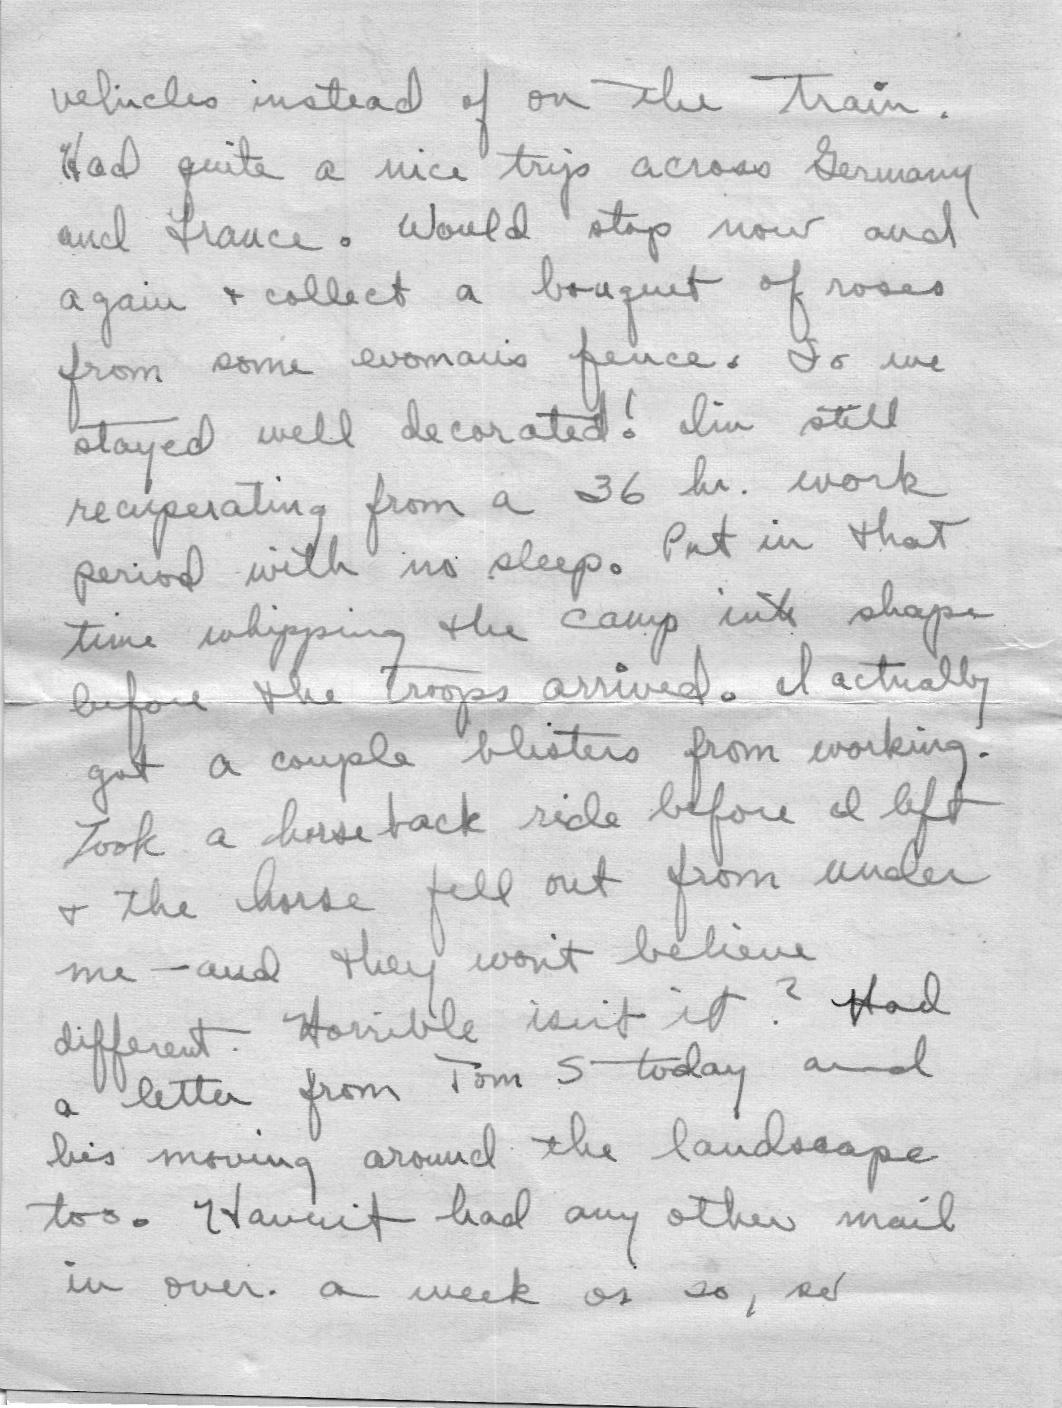 vehicles instead of on the train.
Had quite a nice trip across Germany
and France. Would stop now and
again + collect a bouquet of roses
from some woman's fence. So we
stayed well decorated! I'm still
recuperating from a 36 hr. work
period with no sleep. Put in that
time whipping the camp into shape
before the troops arrived. I actually
got a couple blisters from working.
Took a horseback ride before I left
+ the horse fell out from under
me - and they won't believe
different. Horrible isn't it? Had
a letter from Tom S today and
he's moving around the landscape
too. Haven't had any other mail
in over a week or so, so